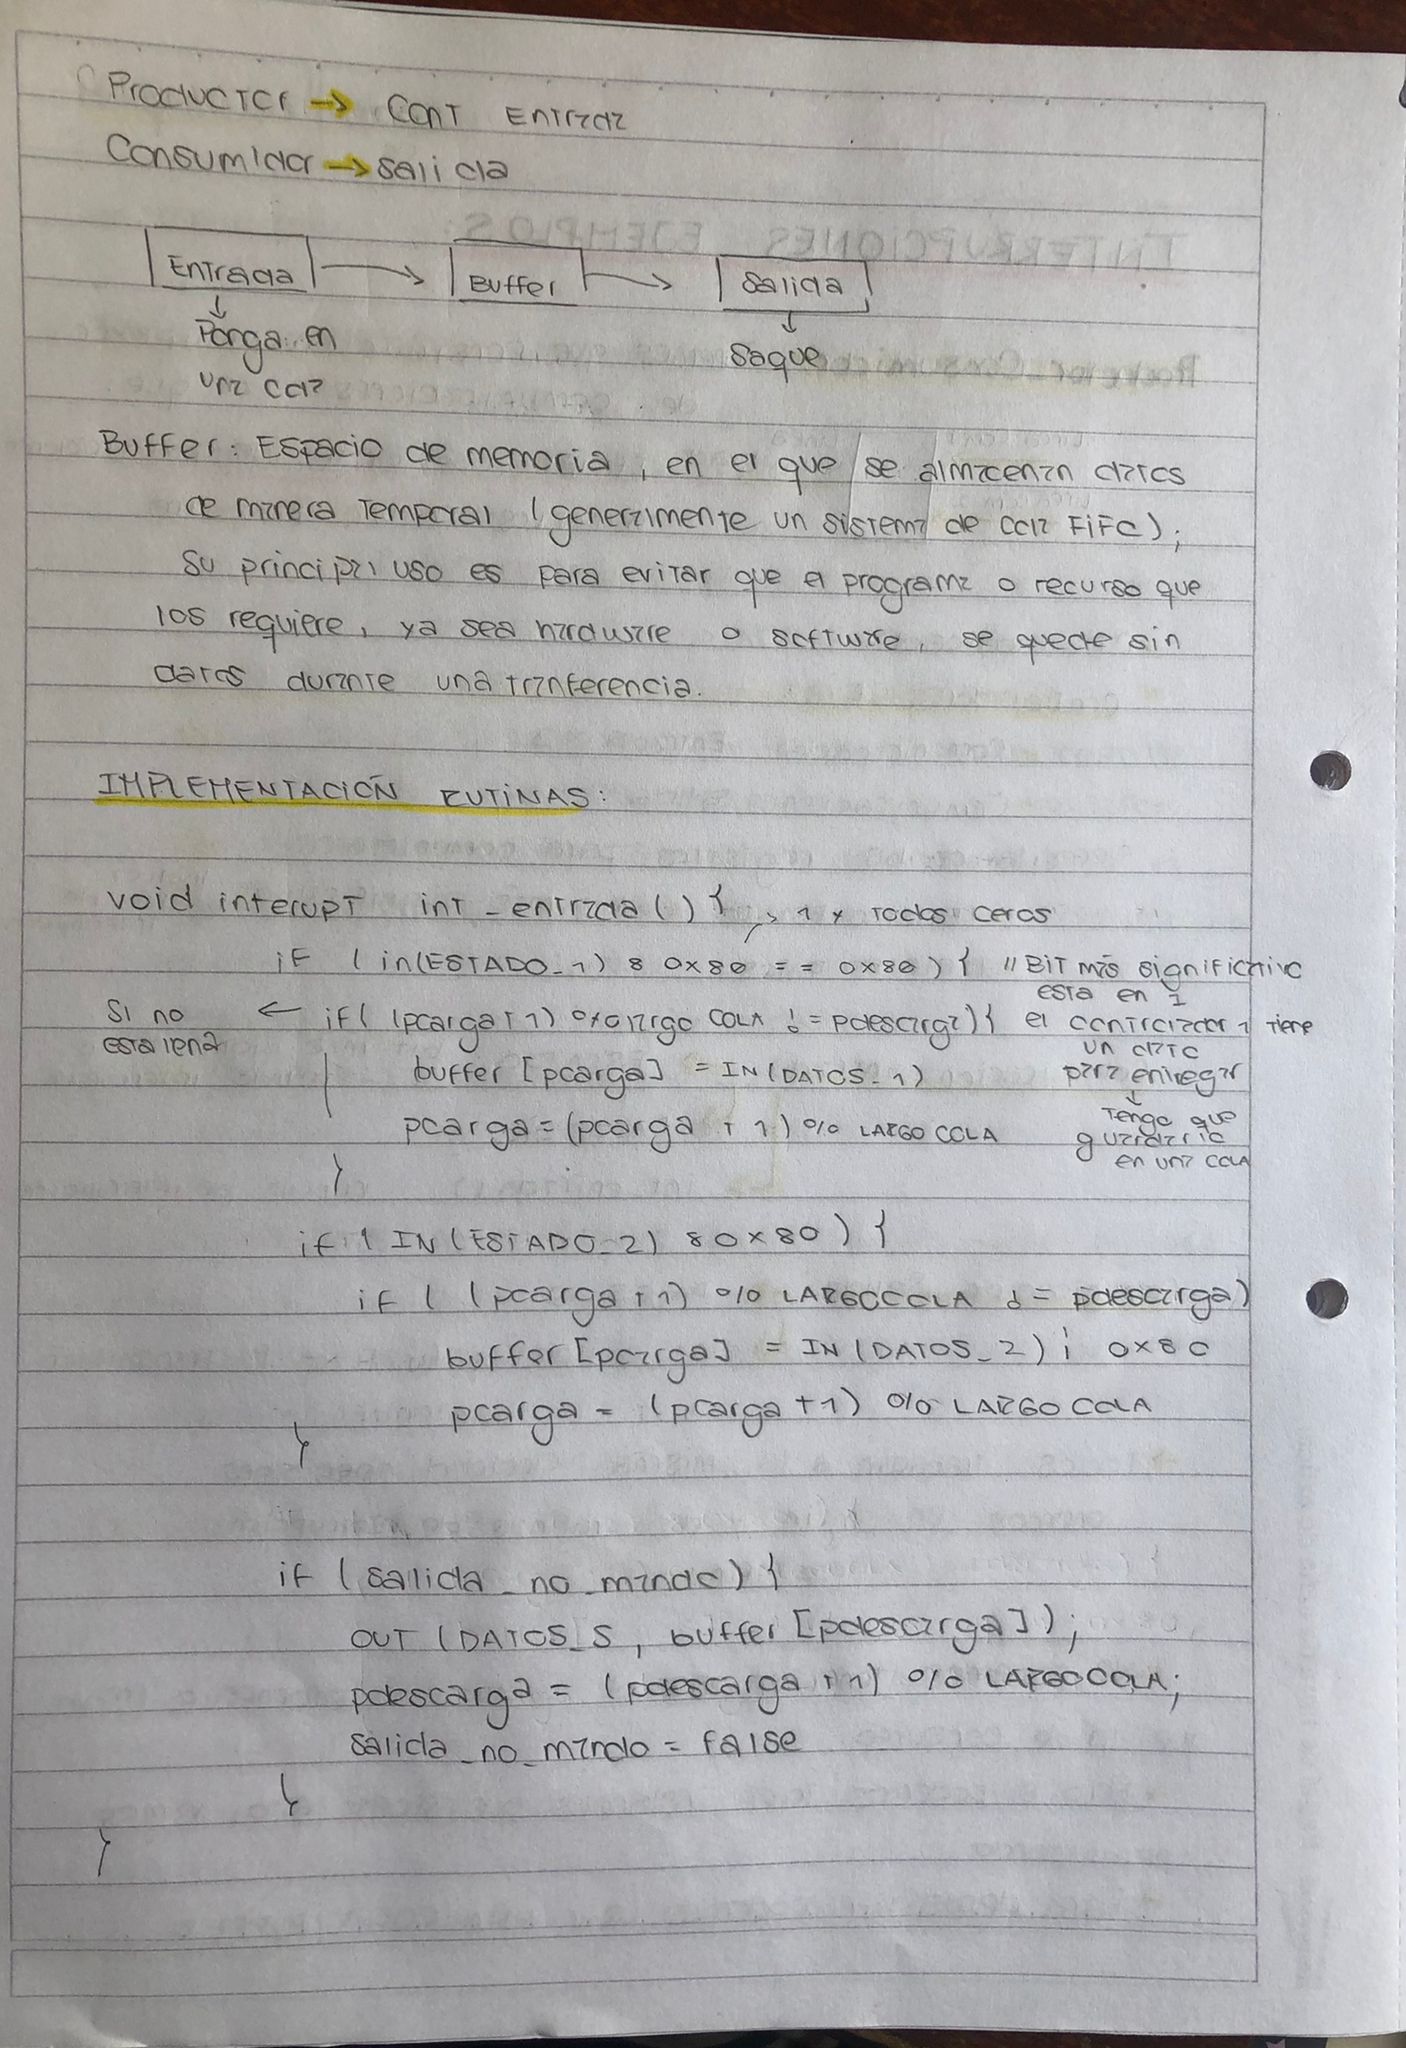 Productor → Cont Entrada
Consumidor → Salida
Entrada → Buffer → Salida
↓ Ponga en ↓ Saque
una cola
Buffer: Espacio de memoria, en el que se almacenan datos
de manera temporal (generalmente un sistema de cola FIFO);
Su principal uso es para evitar que el programa o recurso que
los requiere, ya sea hardware o software, se quede sin
datos durante una tranferencia.
IMPLEMENTACIÓN RUTINAS:
void interupt int_entrada() { → 1 y todos ceros
if (in(ESTADO_1) & 0x80 == 0x80) { // Bit más significativo
esta en 1
Si no ← if( (pcarga+1) % largo COLA != pdescarga) { el controlador 1 tiene
esta llena
un dato
buffer [pcarga] = IN(DATOS_1) para entregar
↓
pcarga = (pcarga + 1) % LARGO COLA Tengo que
guardarlo
en una COLA
}
if ( IN(ESTADO_2) & 0x80) {
if ( (pcarga+1) % LARGOCOLA != pdescarga)
buffer [pcarga] = IN (DATOS_2); 0x80
pcarga = (pcarga+1) % LARGO COLA
}
if (salida_no_mando) {
OUT (DATOS_S, buffer [pdescarga]);
pdescarga = (pdescarga+1) % LARGOCOLA;
salida_no_mando = false
}
}